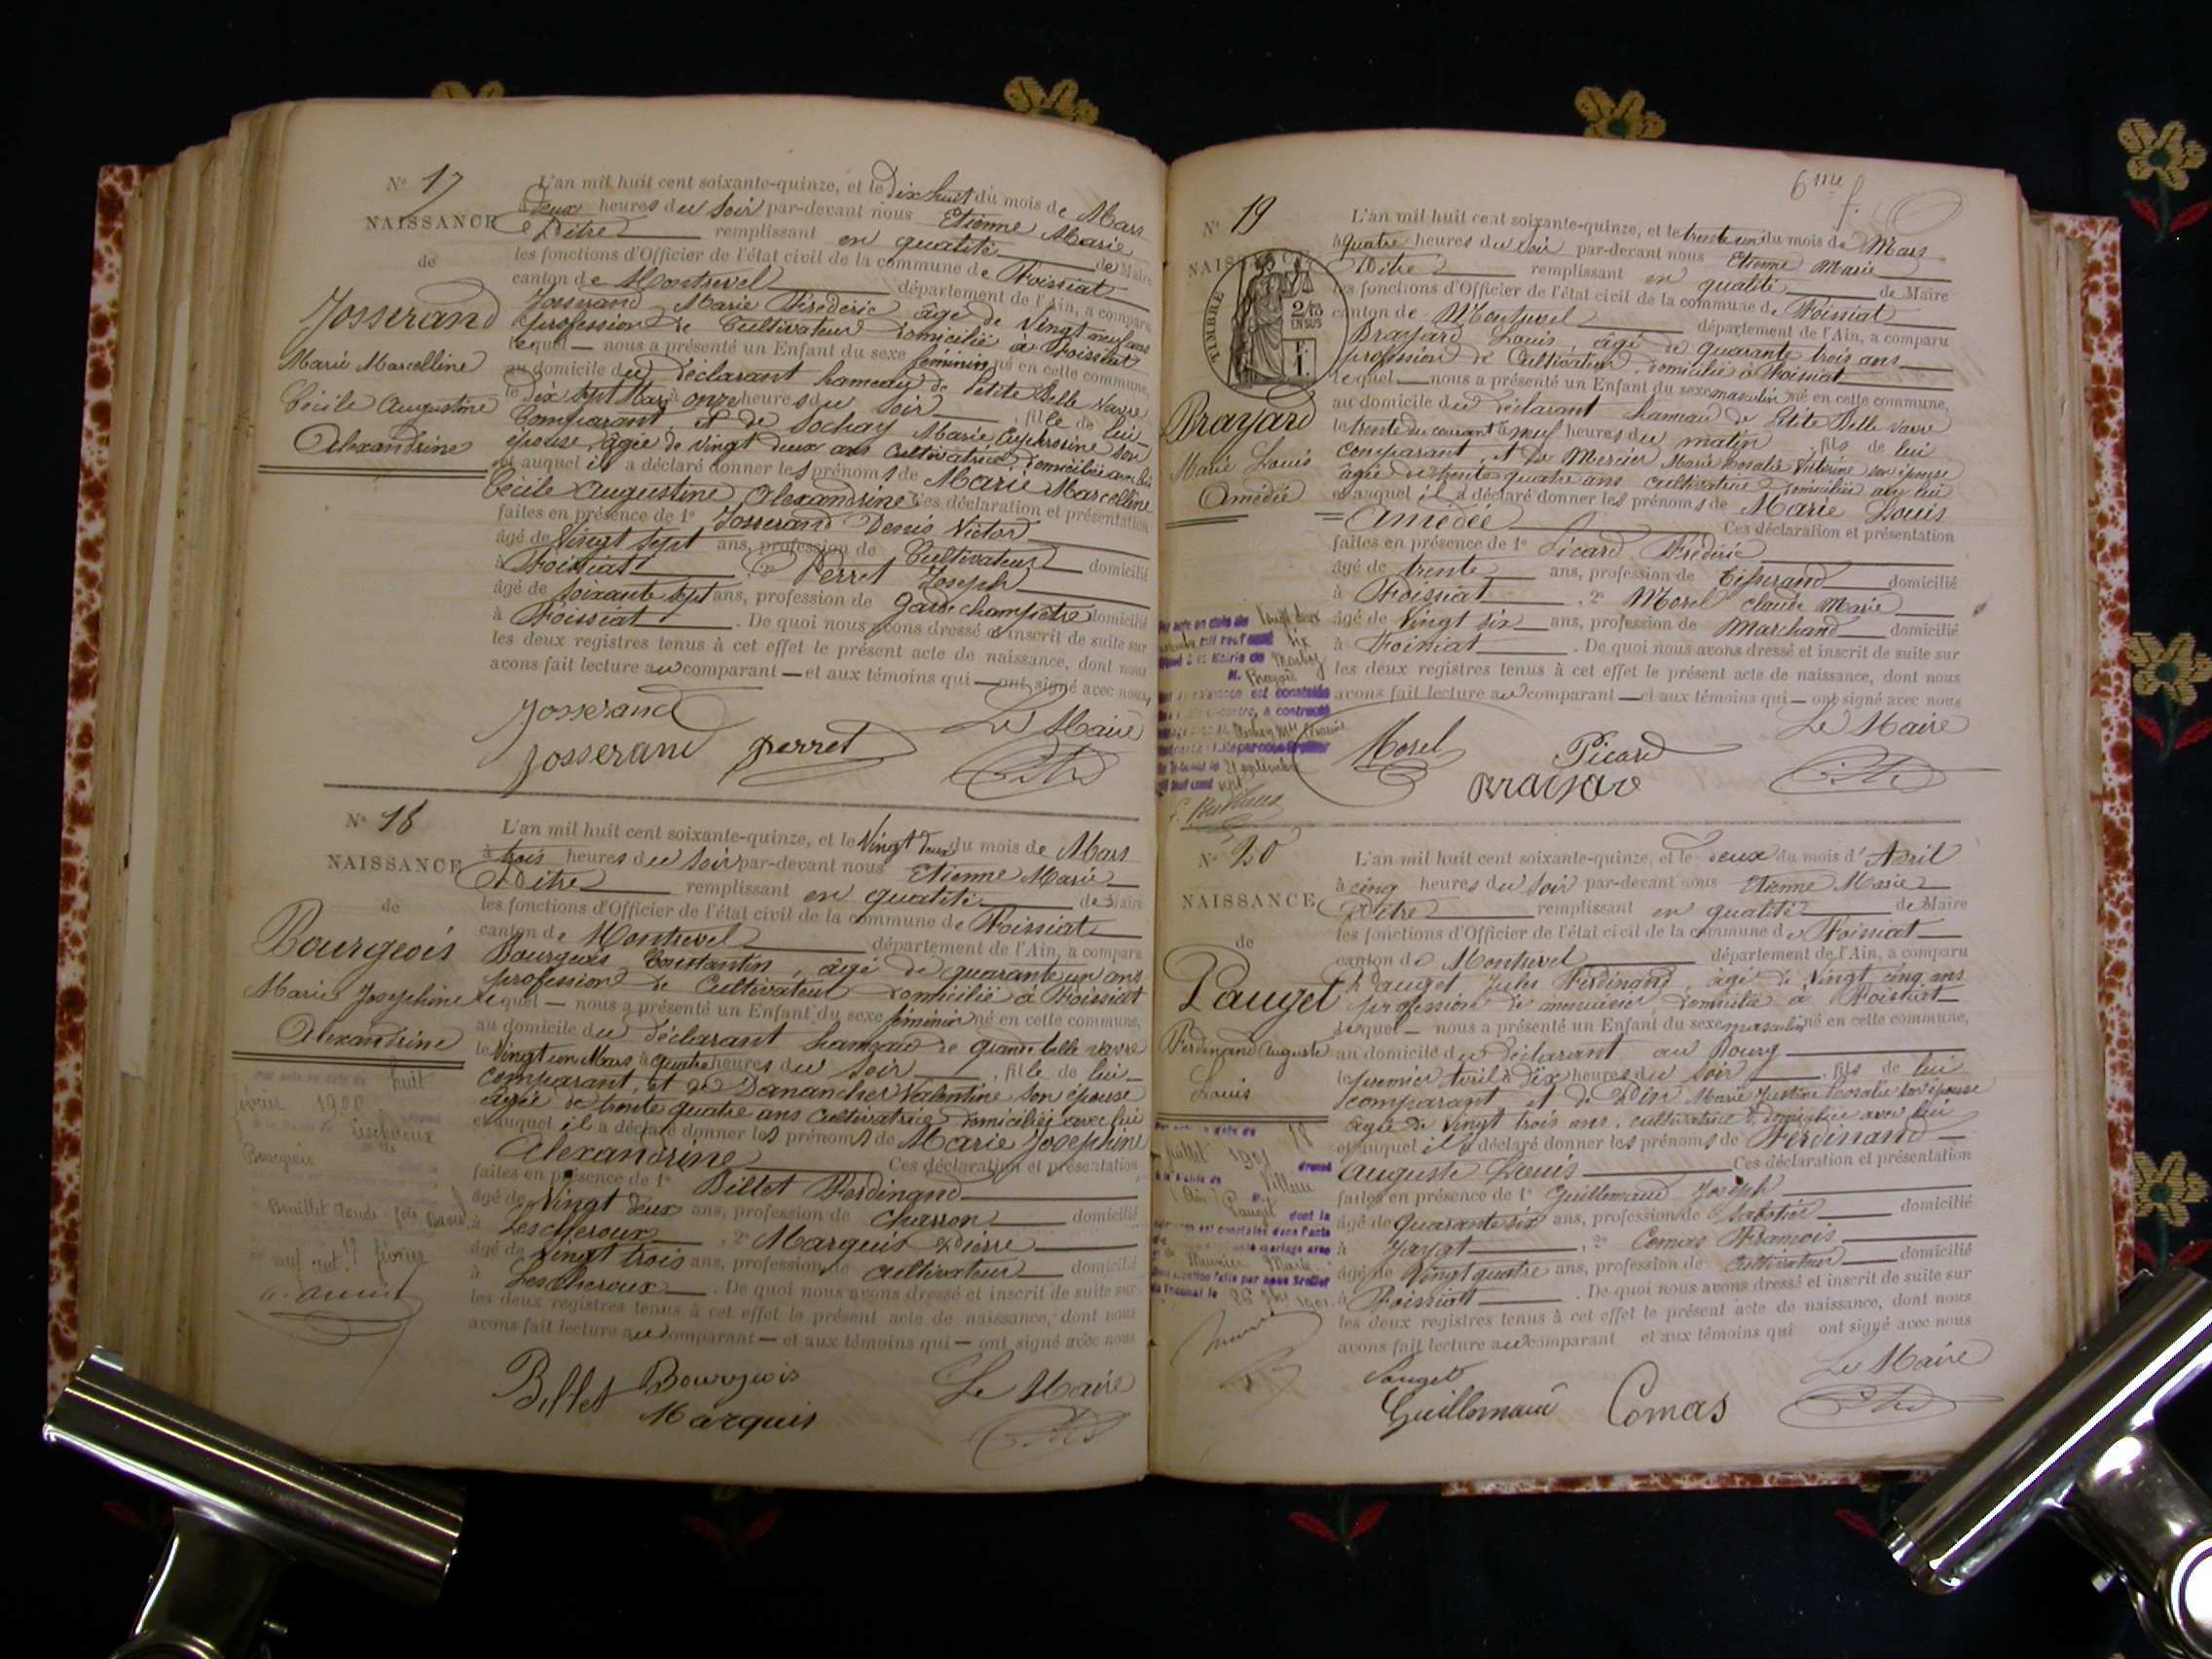 N° 17
NAISSANCE
de
Josserand
Marie Marcelline
Cécile Augustine
Alexandrine
L'an mil huit cent soixante-quinze, et le Dix huit du mois de Mars
à Deux heures du Soir par-devant nous Etienne Marie
Pitre remplissant en qualité de Maire
les fonctions d'Officier de l'état civil de la commune de Foissiat
canton de Montrevel département de l'Ain, a comparu
Josserand Marie Fréderic âgé de Vingt neuf ans
profession de Cultivateur domicilié à Foissiat
lequel — nous a présenté un Enfant du sexe féminin né en cette commune,
au domicile du déclarant hameau de Petite Belle Vavre
le Dix Sept Mars à onze heures du Soir, fille de lui
Comparant, et de Sochay Marie Euphrosine son
épouse âgée de vingt deux ans Cultivatrice domiciliée avec lui
et auquel il a déclaré donner les prénoms de Marie Marcelline
Cécile Augustine Alexandrine Ces déclaration et présentation
faites en présence de 1° Josserand Denis Victor
âgé de Vingt Sept ans, profession de Cultivateur domicilié
à Foissiat, 2° Perret Joseph
âgé de Soixante Sept ans, profession de garde champêtre domicilié
à Foissiat. De quoi nous avons dressé et inscrit de suite sur
les deux registres tenus à cet effet le présent acte de naissance, dont nous
avons fait lecture au comparant — et aux témoins qui — ont signé avec nous
Josserand
Le Maire
Josserand Perret
N° 18
NAISSANCE
de
Bourgeois
Marie Josephine
Alexandrine
L'an mil huit cent soixante-quinze, et le Vingt Deux du mois de Mars
à trois heures du Soir par-devant nous Etienne Marie
Pitre remplissant en qualité de Maire
les fonctions d'Officier de l'état civil de la commune de Foissiat
canton de Montrevel département de l'Ain, a comparu
Bourgeois Constantin, âgé de quarante un ans
profession de Cultivateur domicilié à Foissiat
lequel — nous a présenté un Enfant du sexe féminin né en cette commune,
au domicile du déclarant hameau de grande belle vavre
le Vingt un Mars à quatre heures du Soir, fille de lui
comparant, et de Danancher Valentine son épouse
âgée de trente quatre ans Cultivatrice domiciliée avec lui
et auquel il a déclaré donner les prénoms de Marie Josephine
Alexandrine Ces déclaration et présentation
faites en présence de 1° Billet Ferdinand
âgé de Vingt deux ans, profession de Charron domicilié
à Lescheroux, 2° Marquis Pierre
âgé de Vingt trois ans, profession de Cultivateur domicilié
à Lescheroux. De quoi nous avons dressé et inscrit de suite sur
les deux registres tenus à cet effet le présent acte de naissance, dont nous
avons fait lecture au comparant — et aux témoins qui — ont signé avec nous
huit
1900
Bourgeois
février
Billet Bourgeois Le Maire
Marquis
6me f.
N° 19
NAISSANCE
TIMBRE
2/10 EN SUS
F. 1.
Brayard
Marie Louis
Amédée
L'an mil huit cent soixante-quinze, et le trente un du mois de Mars
à quatre heures du Soir par-devant nous Etienne Marie
Pitre remplissant en qualité de Maire
les fonctions d'Officier de l'état civil de la commune de Foissiat
canton de Montrevel département de l'Ain, a comparu
Brayard Louis, âgé de quarante trois ans
profession de Cultivateur domicilié à Foissiat
lequel — nous a présenté un Enfant du sexe masculin né en cette commune,
au domicile du déclarant hameau de Petite Belle Vavre
le trente du courant à neuf heures du matin, fils de lui
comparant, et de Mercier Marie Rosalie Victorine son épouse
âgée de trente quatre ans cultivatrice domiciliée avec lui
et auquel il a déclaré donner les prénoms de Marie Louis
Amédée Ces déclaration et présentation
faites en présence de 1° Picard Fréderic
âgé de trente ans, profession de Tisserand domicilié
à Foissiat, 2° Morel Claude Marie
âgé de Vingt six ans, profession de Marchand domicilié
à Foissiat. De quoi nous avons dressé et inscrit de suite sur
les deux registres tenus à cet effet le présent acte de naissance, dont nous
avons fait lecture au comparant — et aux témoins qui — ont signé avec nous
Le Maire
Morel Picard
Brayard
N° 20
NAISSANCE
de
Pauget
Ferdinand Auguste
Louis
L'an mil huit cent soixante-quinze, et le deux du mois d'Avril
à cinq heures du Soir par-devant nous Etienne Marie
Pitre remplissant en qualité de Maire
les fonctions d'Officier de l'état civil de la commune de Foissiat
canton de Montrevel département de l'Ain, a comparu
Pauget Jules Ferdinand, âgé de Vingt cinq ans
profession de menuisier domicilié à Foissiat
lequel — nous a présenté un Enfant du sexe masculin né en cette commune,
au domicile du déclarant au Bourg
le premier Avril à Dix heures du Soir, fils de lui
comparant et de Marie Justine Rosalie son épouse
âgée de Vingt trois ans, cultivatrice domiciliée avec lui
et auquel il a déclaré donner les prénoms de Ferdinand
Auguste Louis Ces déclaration et présentation
faites en présence de 1° Guillemaud Joseph
âgé de quarante six ans, profession de Sabotier domicilié
à Jayat, 2° Comas François
âgé de Vingt quatre ans, profession de Cultivateur domicilié
à Foissiat. De quoi nous avons dressé et inscrit de suite sur
les deux registres tenus à cet effet le présent acte de naissance, dont nous
avons fait lecture au comparant et aux témoins qui ont signé avec nous
Le Maire
Pauget
Guillemaud Comas